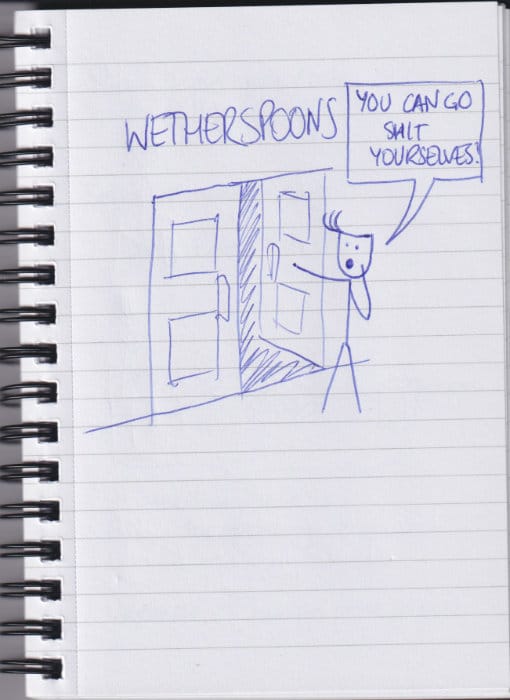 WETHERSPOONS
YOU CAN GO
SHIT
YOURSELVES!